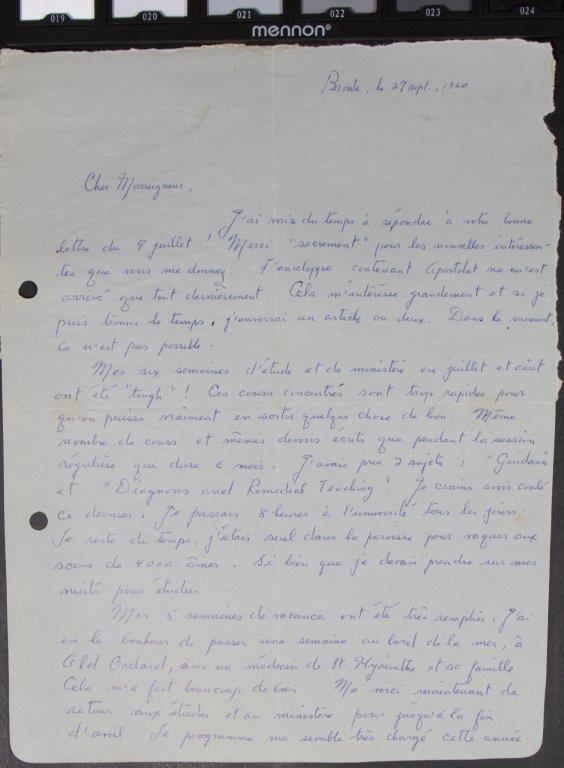 019 020 021 022 023 024
mennon®
Bronte, le 27 sept., 1960
Cher Monseigneur,
J'ai mis du temps à répondre à votre bonne
lettre du 9 juillet ! Merci "sacrement" pour les nouvelles intéressan-
tes que vous me donnez. L'enveloppe contenant Apostolat ne m'est
arrivé que tout dernièrement. Cela m'intéresse grandement et si je
puis trouver le temps, j'enverrai un article ou deux. Dans le moment,
ce n'est pas possible.
Mes six semaines d'étude et de ministère en juillet et août
ont été "tough" ! Ces cours concentrés sont trop rapides pour
qu'on puisse vraiment en sortir quelque chose de bon. Même
nombre de cours et mêmes devoirs écrits que pendant la session
régulière qui dure 6 mois. J'avais pris 2 sujets : "Guidance
et "Diagnoses and Remedial Teaching". Je crains avoir coulé
ce dernier. Je passais 8 heures à l'université tous les jours.
Le reste du temps, j'étais seul dans la paroisse pour vaquer aux
soins de 4000 âmes. Si bien que je devais prendre sur mes
nuits pour étudier.
Mes 5 semaines de vacance ont été très remplies. J'ai
eu le bonheur de passer une semaine au bord de la mer, à
Old Orchard, avec un médecin de St. Hyacinthe et sa famille.
Cela m'a fait beaucoup de bien. Me voici maintenant de
retour aux études et au ministère pour jusqu'à la fin
d'avril. Le programme me semble très chargé cette année.